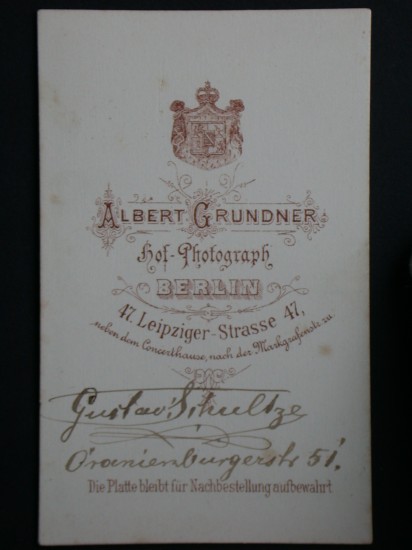 ALBERT GRUNDNER
Hof-Photograph
BERLIN
47. Leipziger-Strasse 47,
neben dem Concerthause, nach der Markgrafenstr. zu.
Gustav Schultze
Oranienburgerstr 51.
Die Platte bleibt für Nachbestellung aufbewahrt